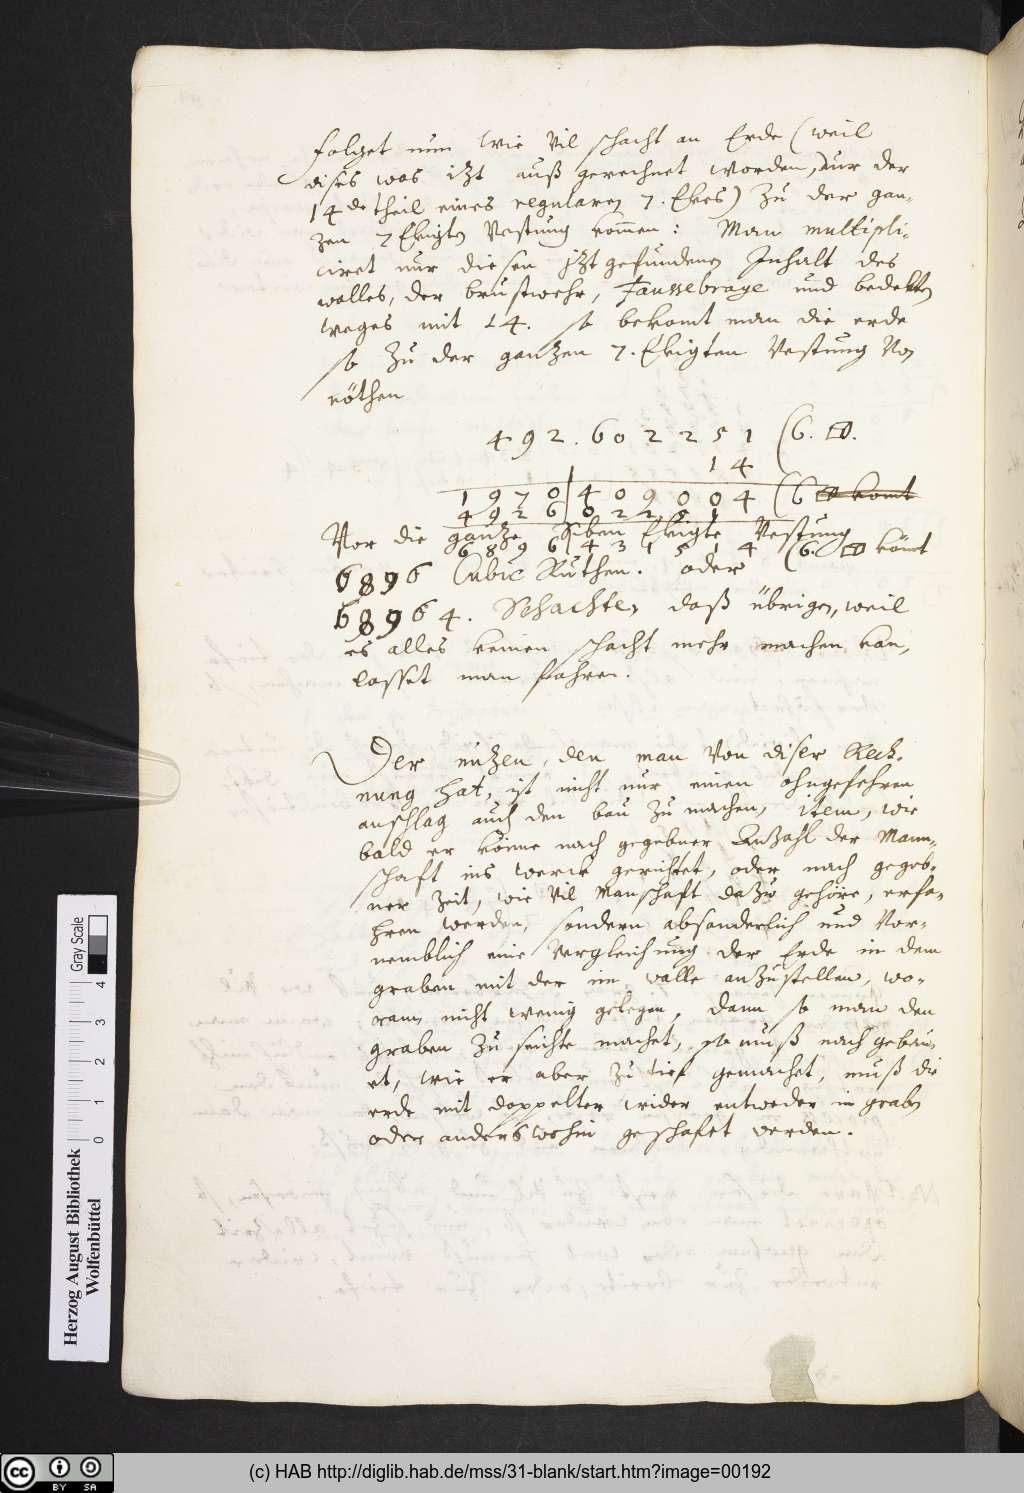 folget nun wie vil schacht an Erde (weil
dises was itzt auß gerechnet worden, nur der
14de theil eines regularen 7. Ekes) zu der gan-
zen 7 Ekigten Vestung kommen: Man multipli-
ciret nur diesen itzt gefundenen Inhalt des
walles, der brustwehr, Faussebraye und bedekten
weges mit 14. so bekomt man die erde
so zu der gantzen 7. Ekigten Vestung von
nöthen
492.602251 (6.
14
1970|409004 (6 komt
4926|02251
Vor die gantze Siben Ekigte Vestung
6896|431514 (6. komt
6896 Cubic Ruthen. oder
68964. Schachten, daß übrigen, weil
es alles keinen schacht mehr machen kan,
lasset man fahren.
Der nutzen, den man von diser Rech-
nung hat, ist nicht nur einen ohngefehren
anschlag auch den bau zu machen, item, wie
bald er könne nach gegebner Anzahl der Mann-
schaft ins werck gerichtet, oder nach gegeb-
ner Zeit, wie vil Manschaft dazu gehöre, erfa-
hren werden, sondern absonderlich und vor-
nemblich eine vergleichung der Erde in dem
graben mit der im walle anzustellen, wo-
ran nicht wenig gelegen, dann so man den
graben zu seichte machet, so muß nach gebau-
et, wie er aber zu tief gemachet, muß die
erde mit doppelter wider entweder in graben
oder anderswohin geschafet werden.
Herzog August Bibliothek
Wolfenbüttel
0 1 2 3 4
Gray Scale
(c) HAB http://diglib.hab.de/mss/31-blank/start.htm?image=00192
cc BY SA